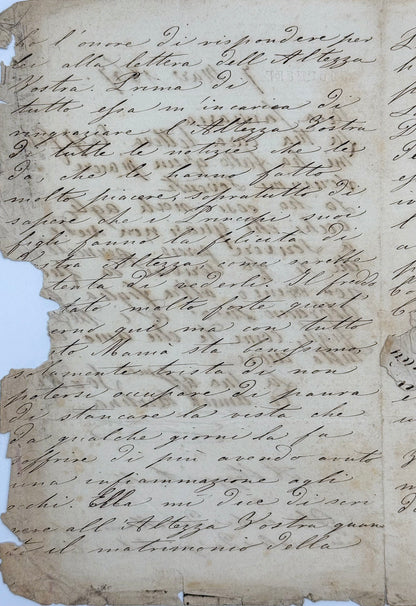 l'onore di rispondere per
lei alla lettera dell'Altezza
Vostra. Prima di
tutto essa m'incarica di
ringraziare l'Altezza Vostra
di tutte le notizie che le
da che le hanno fatto
molto piacere, sopratutto di
sapere che i Principi suoi
figli fanno la felicità di
Vostra Altezza, come sarebbe
contenta di vederli. Il freddo
stato molto forte quest'
inverno qui ma con tutto
questo Mama sta benissimo
solamente trista di non
potersi occupare di paura
di stancare la vista che
da qualche giorni la fa
soffrire di più avendo avuto
una infiammazione agli
occhi. Ella mi dice di scri
vere all'Altezza Vostra quan
to il matrimonio della